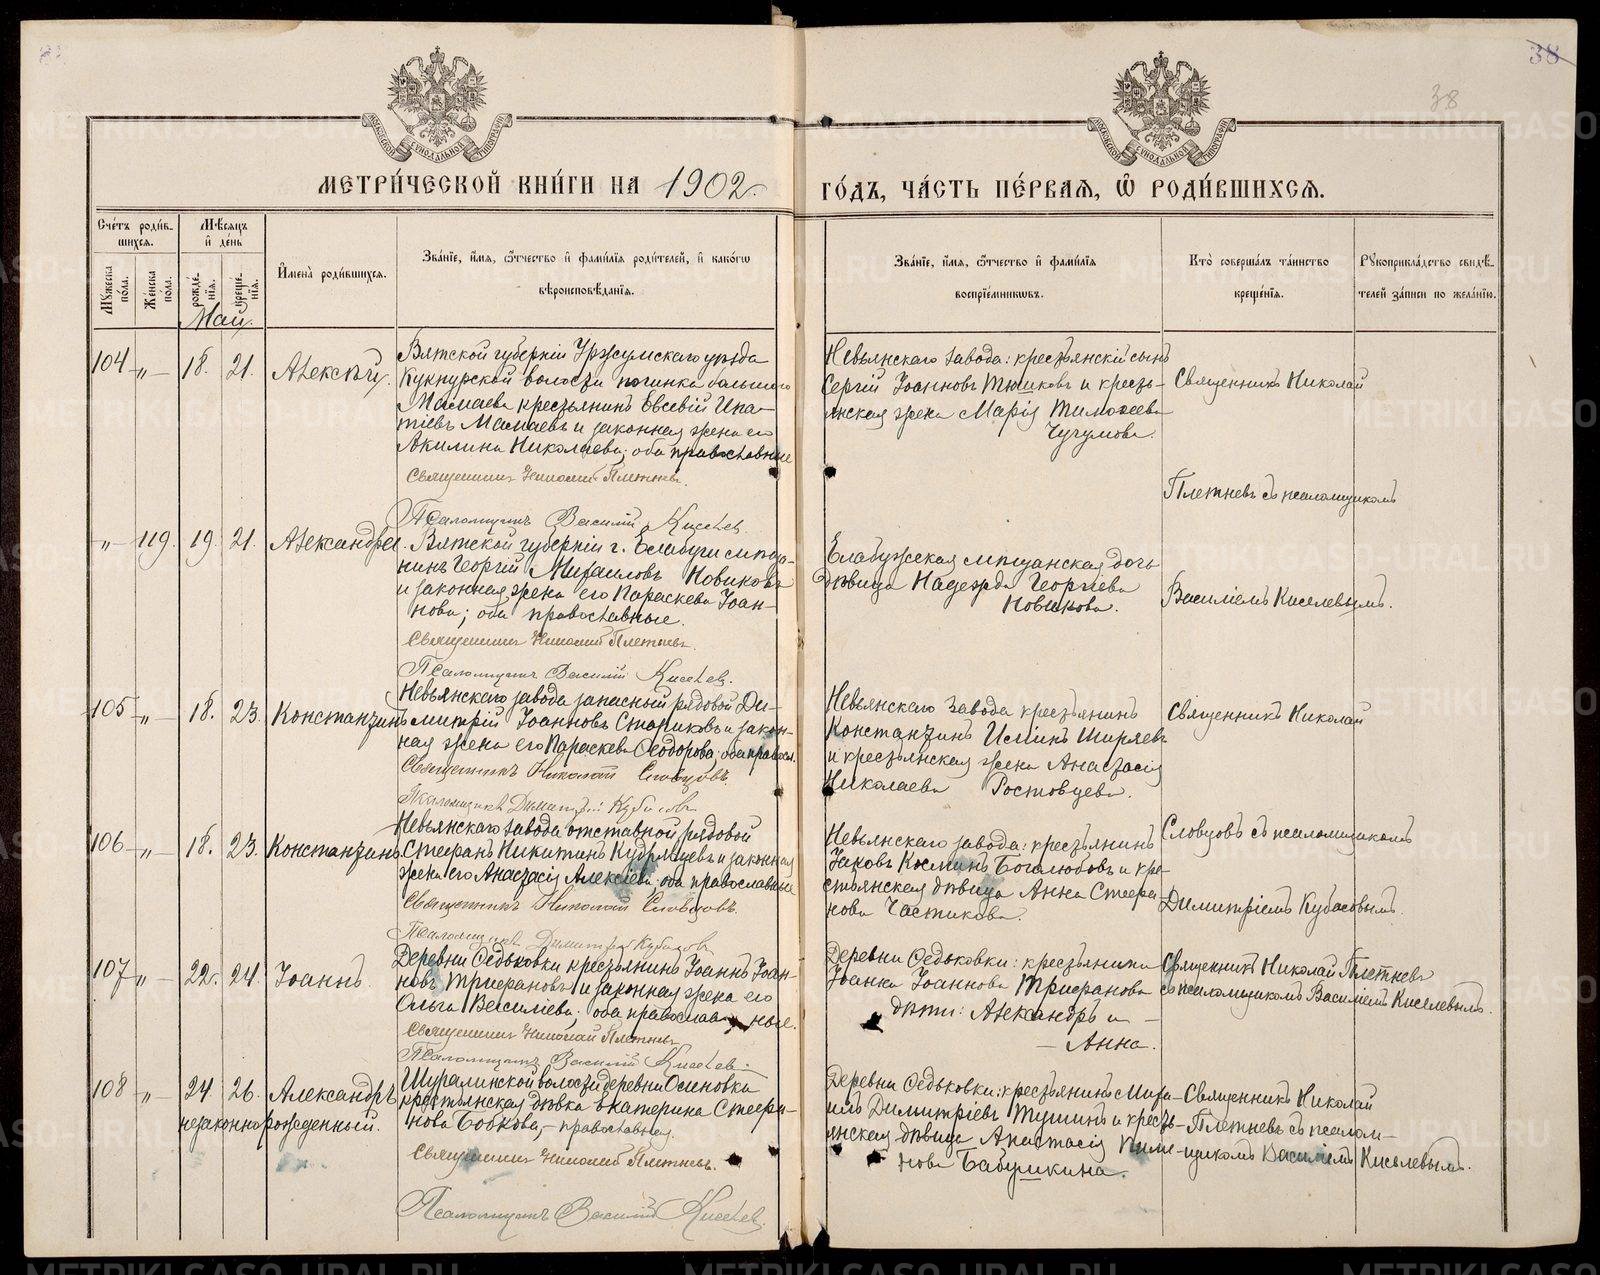 38
38
МЕТРИ́ЧЕСКОЙ КНИ́ГИ НА 1902 г. ГО́ДЪ, ЧА́СТЬ ПЕ́РВАѦ, Ѿ РОДИ́ВШИХСѦ.
Сче́тъ роди́вшихсѧ.
Мѣ́сѧцъ и де́нь
Мꙋ́жеска по́ла.
Же́нска по́ла.
рожде́нїѧ.
креще́нїѧ.
Имена̀ роди́вшихсѧ.
Зва́нїе, и́мѧ, ѻ́тчество и фами́лїѧ роди́телей, и како́гѡ вѣроисповѣ́данїѧ.
Зва́нїе, и́мѧ, ѻ́тчество и фами́лїѧ воспрїе́мникѡвъ.
Кто̀ соверша́лъ та́инство креще́нїѧ.
Рꙋкоприкла́дство свидѣ́телей за́писи по жела́нїю.
Май.
104 „ 18. 21. Алексѣй.
Вятской губерніи Уржумскаго уѣзда
волости починка большого
Мамаева крестьянинъ Евсевій Ипа-
тіевъ Мамаевъ и законная жена его
Акилина Николаева; оба православные
Священникъ Николай Плетневъ.
Псаломщикъ Василій Киселев.
Невьянскаго завода: крестьянскій сынъ
Сергій Іоанновъ Тюшковъ и кресть-
янская жена Марія Тимоѳеева
Чугумова.
Священникъ Николай
Плетневъ съ псаломщикомъ
„ 119. 19. 21. Александра.
Вятской губерніи г. Елабуги мѣща-
нинъ Георгій Михаиловъ Новиковъ
и законная жена его Параскева Іоан-
нова; оба православные.
Священникъ Николай Плетневъ.
Псаломщикъ Василій Киселев.
Елабужская мѣщанская дочь
дѣвица Надежда Георгіева
Новикова.
Василіемъ Киселевымъ.
105 „ 18. 23. Константинъ
Невьянскаго завода запасный рядовой Ди-
митрій Іоанновъ Стариковъ и закон-
ная жена его Параскева Ѳеодорова; оба правосл.
Священникъ Николай Словцовъ.
Псаломщикъ Димитрій Кубасовъ
Невьянскаго завода крестьянинъ
Константинъ Ширяевъ
и крестьянская жена Анастасія
Николаева Ростовцева.
Священникъ Николай
Словцовъ съ псаломщикомъ
106 „ 18. 23. Константинъ.
Невьянскаго завода отставной рядовой
Стефанъ Никитинъ Кудрявцевъ и законная
жена его Анастасія Алексѣева; оба православные
Священникъ Николай Словцовъ.
Псаломщикъ Димитрій Кубасовъ
Невьянскаго завода: крестьянинъ
Іаковъ Косминъ Боголюбовъ и кре-
стьянская дѣвица Анна Стефа-
нова Частикова.
Димитріемъ Кубасовымъ.
107 „ 22. 24. Іоаннъ.
Деревни Ѳедьковки крестьянинъ Іоаннъ Іоан-
новъ Трифановъ и законная жена его
Ольга Василіева; оба православные.
Священникъ Николай Плетневъ
Псаломщикъ Василій Киселев.
Деревни Ѳедьковки: крестьянина
Іоанна Іоаннова Трифанова
дѣти: Александръ и —
— Анна.
Священникъ Николай Плетневъ
съ псаломщикомъ Василіемъ Киселевымъ.
108 „ 24. 26. Александръ
незаконнорожденный.
Шуралинской волости деревни Осиновки
крестьянская дѣвка Екатерина Стефа-
нова Бобкова, — православная.
Священникъ Николай Плетневъ.
Псаломщикъ Василій Киселев.
Деревни Ѳедьковки: крестьянинъ Миха-
илъ Димитріевъ Тушинъ и кресть-
янская дѣвица Анастасія Пиме-
нова Бабушкина.
Священникъ Николай
Плетневъ съ псалом-
щикомъ Василіемъ Киселевымъ.
METRIKI.GASO-URAL.RU